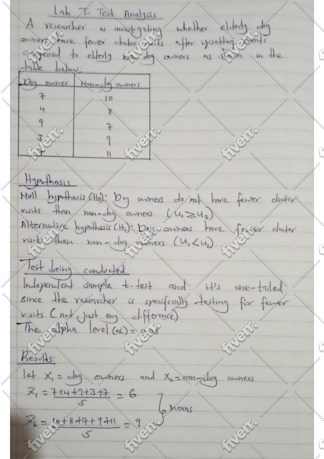 Lab T-Test Analysis
A researcher is investigating whether elderly dog
owners have fewer doctor visits after upsetting events
compared to elderly non-dog owners as shown in the
table below.
Dog owners Non-dog owners
7 10
4 8
9 7
3 9
7 11
Hypothesis
Null hypothesis (H₀): Dog owners do not have fewer doctor
visits than non-dog owners (u₁≥u₂)
Alternative hypothesis (H₁): Dog owners have fewer doctor
visits than non-dog owners (u₁<u₂)
Test being conducted
Independent sample t-test and it's one-tailed
since the researcher is specifically testing for fewer
visits (not just any difference)
The alpha level (α) = 0.05
Results:
let X₁ = dog owners and X₂ = non-dog owners
X̄₁ = 7+4+9+3+7 / 5 = 6
X̄₂ = 10+8+7+9+11 / 5 = 9
means
fiverr.